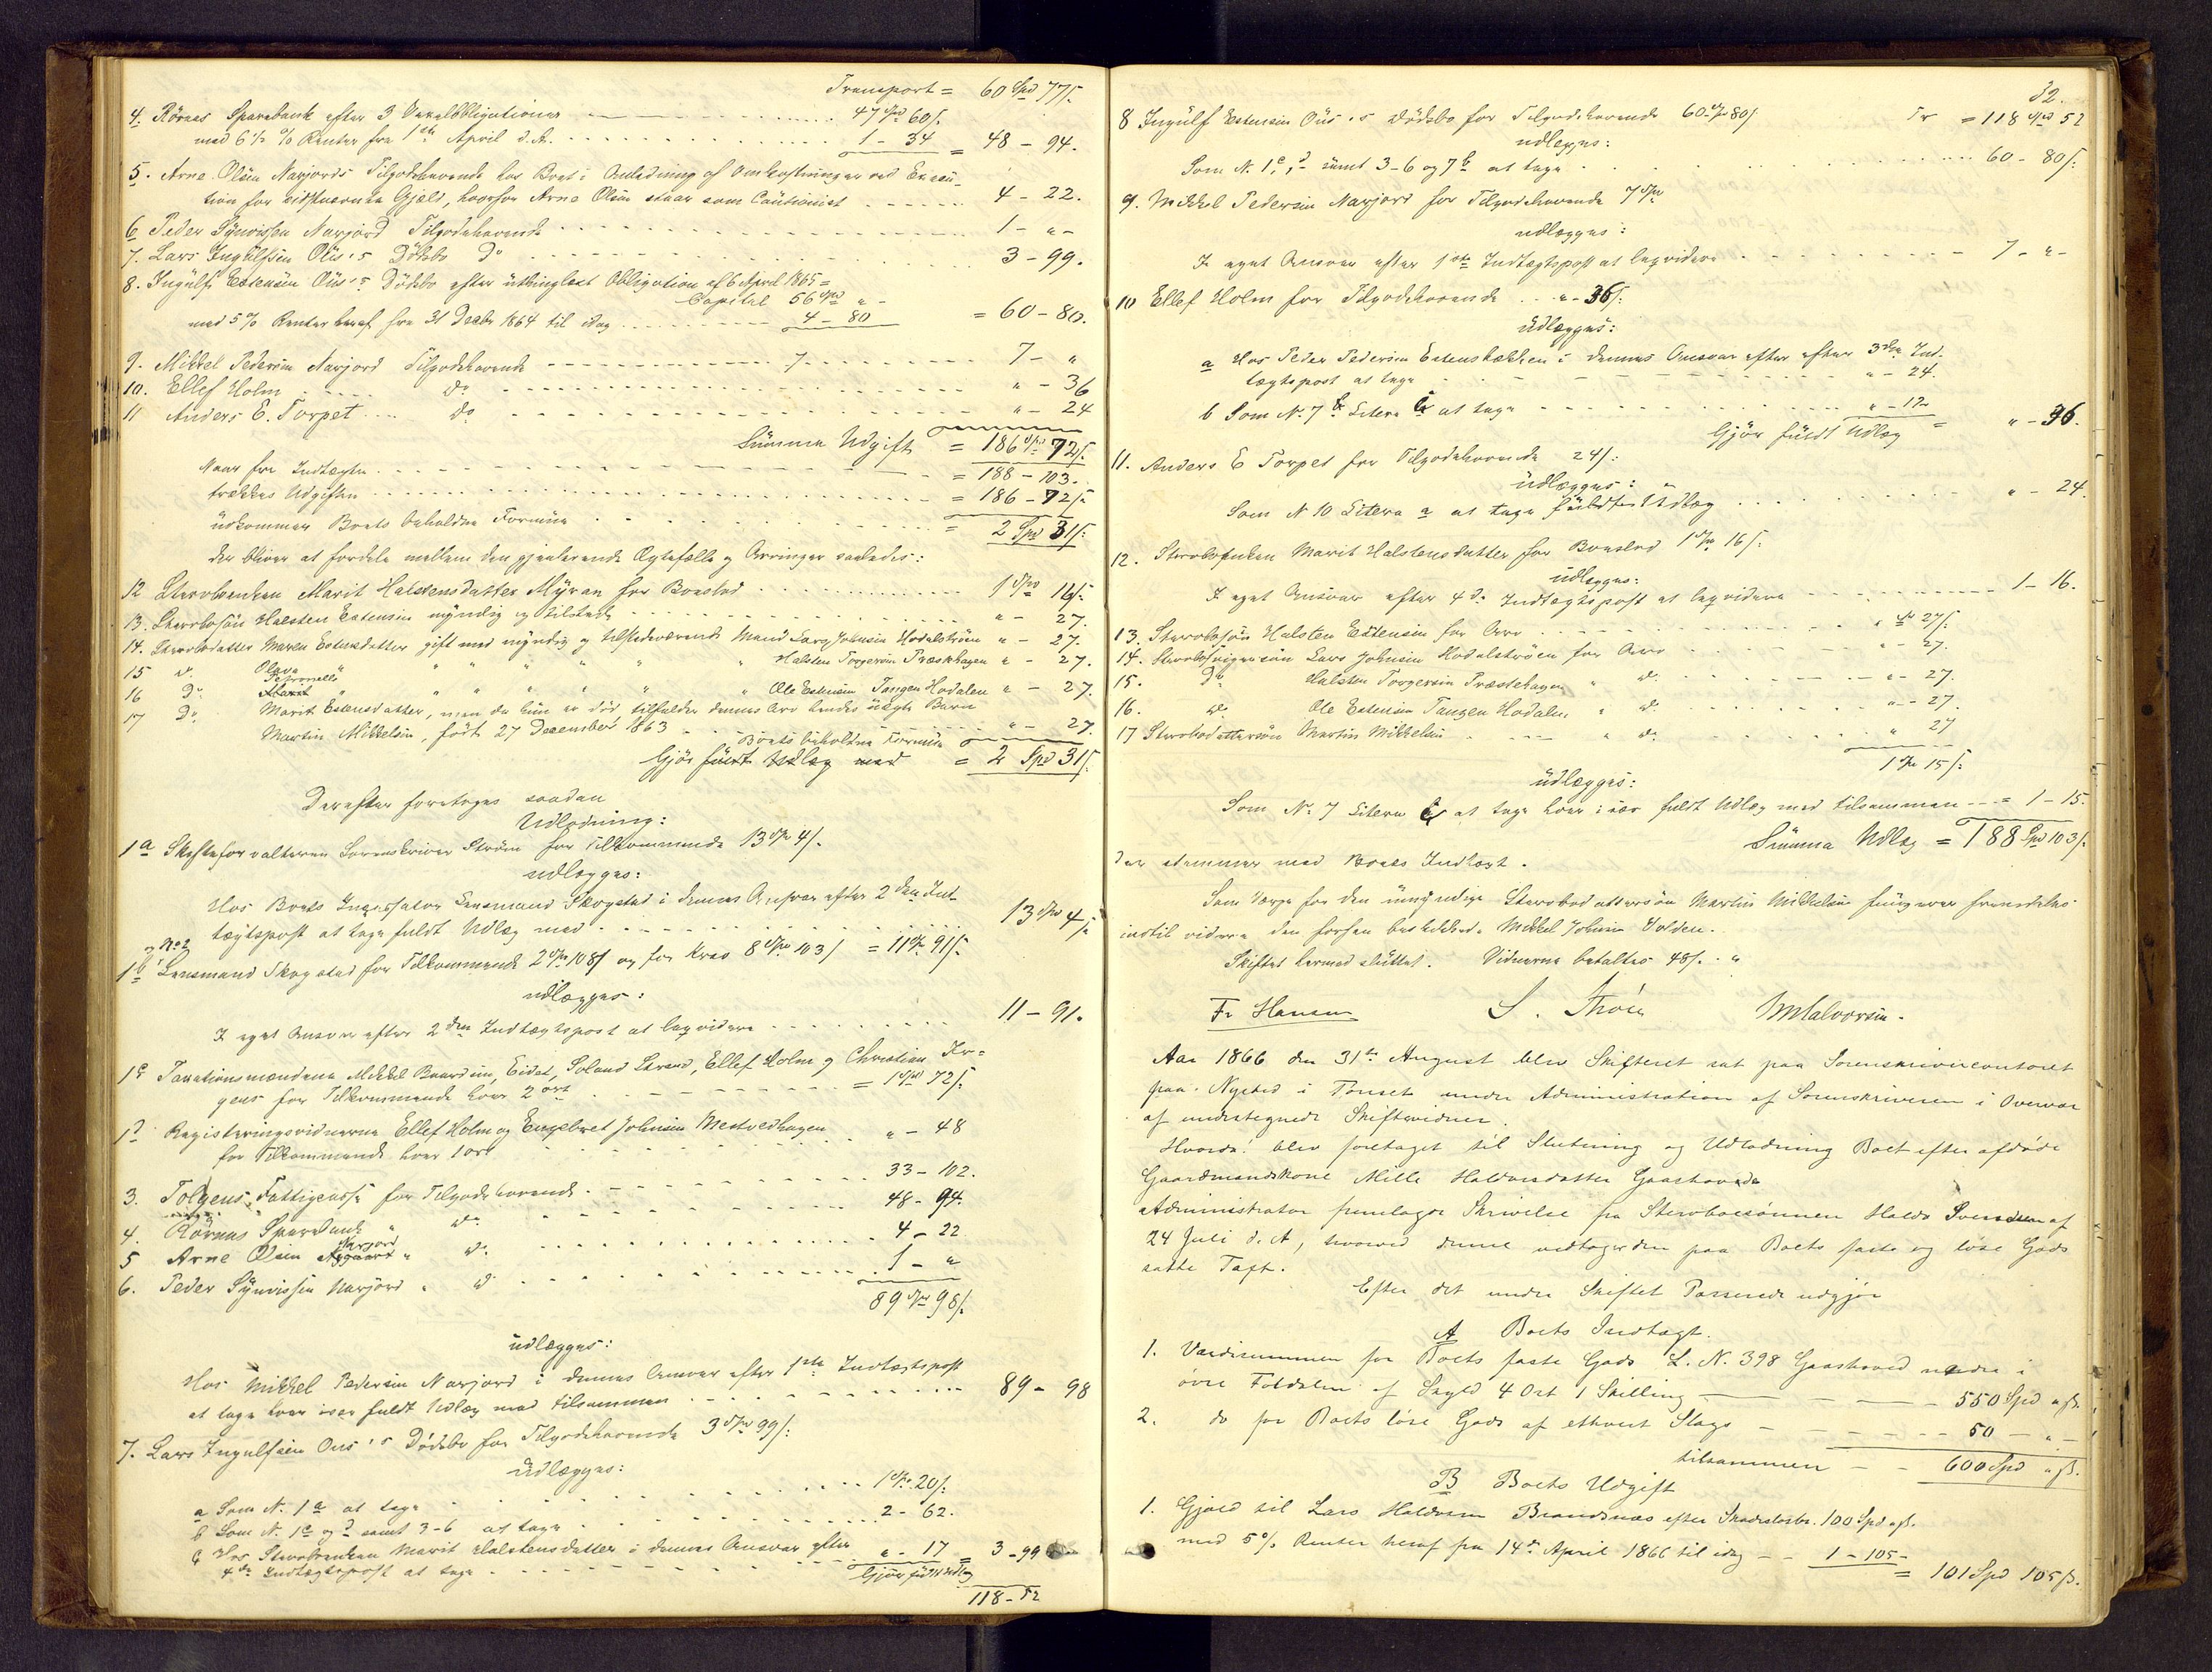 Transport = 60 Spd 77 ß.
4. Rörøes Sparebank efter 3 Vexelobligationer 47 Spd 60 ß.
med 6 % Renter fra 1ste April d.A. 1 - 34 = 48 - 94.
5. Arne Olsen Narjords Tilgodehavende hos Boet i Anledning af Omkostninger ved Execu-
tion for Gjæld, hvorfor Arne Olsen staar som Cautionist 4 - 22.
6 Peder Synvissen Narjord Tilgodehavende 1 - " -
7. Lars Ingulfsen Ous's Dödsbo Do 3 - 99.
8. Ingulf Estensen Ous's Dödsbo efter üthinglæst Obligation af 6 April 1865 =
Capital 56 Spd " -
med 5 % Renter heraf fra 31 Decbr 1864 til idag 4 - 80 = 60 - 80.
9. Mikkel Pedersen Narjord Tilgodehavende 7 7 - "
10. Ellef Holm do " - 36
11 Anders E. Torpet do " - 24
Summa Udgift = 186 Spd 72 ß.
Naar fra Indtægten = 188 - 103.
trækkes Udgiften = 186 - 72 ß
udkommer Boets beholdne Formue = 2 Spd 31 ß.
der bliver at fordele mellem den gjenlevende Ægtefælle og Arvinger saaledes:
12 Stervboenken Marit Halstensdatter Myran for Boeslod 1 Spd 16 ß.
13. Stervbosön Halsten Estensen myndig og tilstede " - 27.
14. Stervbodatter Maren Estensdatter gift med myndig og tilstedeværende Mand Lars Johnsen Hodalströen " - 27.
15 do Olava " " " " " " Halsten Torgersen Præsthagen " - 27.
16 Do Petronelle " " " " " " Ole Estensen Tangen Hodalen " - 27.
17 Do Marit Estensdatter, men da hun er död tilfalder dennes Arv hendes uægte Barn
Martin Mikkelsen, født 27 December 1863 " - 27.
Boets beholdne Formue
Gjör fuldt Udlæg med = 2 Spd 31 ß.
Derefter foretoges saadan
Udlodning:
1a Skifteforvalteren Sorenskriver Ström for Tilkommende 13 Spd 4 ß.
udlægges:
Hos Boets Incassator Lensmand Skogstad i dennes Ansvar efter 2den Ind-
tægtspost at tage fuldt Udlæg med 13 Spd 4 ß
1b og No 2 Lensmand Skogstad for Tilkommende 2 Spd 108 ß og for Krav 8 Spd 103 ß = 11 Spd 91 ß.
udlægges:
I eget Ansvar efter 2den Indtægtspost at liqvidere 11 - 91.
1c Taxationsmændene Mikkel Baardsen, Eidet, Soland Strand, Ellef Holm og Christian Kr-
gens for Tilkommende hver 2 ort = 1 Spd 72 ß.
1d Registreringsvidnerne Ellef Holm og Engebret Johnsen Mestvedhagen
for Tilkommende hver 1 ort " - 48
3. Tolgens Fattigcasse for Tilgodehavende 33 - 102.
4. Rörøes Sparebank " do 48 - 94.
5 Arne Olsen Narjord " do 4 - 22
6. Peder Synvissen Narjord " do 1 - "
89 Spd 98 ß.
udlægges:
Hos Mikkel Pedersen Narjord i dennes Ansvar efter 1ste Indtægtspost
at tage hver især fuldt Udlæg med tilsammen 89 - 98
7. Lars Ingulfsen Ous's Dödsbo for Tilgodehavende 3 Spd 99 ß:
udlægges:
a Som N. 1a at tage 1 Spd 20 ß.
b Som N. 1c og d samt 3-6 at tage 2 - 62.
c Hos Stervboenken Marit Halstensdatter i dennes Ansvar efter
4de Indtægtspost at tage " - 17 = 3 - 99
Gjör fuldt Udlæg
118 - 52
32.
Tr = 118 Spd 52
8 Ingulf Estensen Ous's Dödsbo for Tilgodehavende 60 Spd 80 ß
udlægges:
Som N. 1c, d samt 3-6 og 7b at tage 60 - 80 ß.
9. Mikkel Pedersen Narjord for Tilgodehavende 7 Spd
udlægges:
I eget Ansvar efter 1ste Indtægtspost at liqvidere 7 - " -
10 Ellef Holm for Tilgodehavende " - 36 ß.
udlægges:
a Hos Peder Pedersen Estensbakken i dennes Ansvar efter efter 3die Ind-
tægtspost at tage " - 24.
b Som N. 7 Litera c at tage " - 12
Gjör fuldt Udlæg = " - 36.
11. Anders E Torpet for Tilgodehavende 24 ß:
udlægges:
Som N 10 Litera a at tage fuldt Udlæg " - 24.
12. Stervboenken Marit Halstensdatter for Boeslod 1 Spd 16 ß.
udlægges:
I eget Ansvar efter 4de Indtægtspost at liqvidere 1 - 16.
13. Stervbosön Halsten Estensen for Arv " Spd 27 ß.
14. Stervbosvigersön Lars Johnsen Hodalströen for Arv " - 27.
15. do Halsten Torgersen Præstehagen " do " - 27.
16. do Ole Estensen Tangen Hodalen " do " - 27.
17 Stervbodattersön Martin Mikkelsen " do " 27
1 Spd 15 ß.
udlægges:
Som No 7 Litera c at tage hver især fuldt Udlæg med tilsammen = 1 - 15.
Summa Udlæg = 188 Spd 103 ß.
der stemmer med Boets Indtægt.
Som Værge for den umyndige Stervbodattersön Martin Mikkelsen fungerer fremdeles
indtil videre den forhen beskikkede Mikkel Johnsen Volden.
Skiftet hermed sluttet. Vidnerne betaltes 48 ß. "
Fr Hansen S. Thoén Halvorsen.
Aar 1866 den 31te August blev Skifteret sat paa Sorenskrivercontoret
paa Nysted i Tönset under Administration af Sorenskriveren i Overvær
af undertegnede Skiftevidner.
Hvorda: blev foretaget til Slutning og Udlodning Boet efter afdöde
Gaardmandskone Mille Haldorsdatter Gaashoved
Administrator fremlagde Skrivelse fra Stervboesönnen Haldo Svendsen af
24 Juli d. A, hvorved denne vedtager den paa Boets faste og löse Gods
satte Taxt.
Efter det under Skiftet Passerede udgjör
A Boets Indtægt.
1. Værdisummen for Boets faste Gods L. N. 398 Gaashoved nedre i
övre Foldalen af Skyld 4 Ort 1 Skilling 550 Spd " ß.
2. do for Boets löse Gods af ethvert Slags 50 - " -
tilsammen 600 Spd " ß.
B Boets Udgift
1. Gjæld til Lars Haldorsen Brandsnæs efter Skadeslösbr. 100 Spd " ß.
med 5 % Renter heraf fra 14de April 1866 til idag 1 - 105 -
= 101 Spd 105 ß.